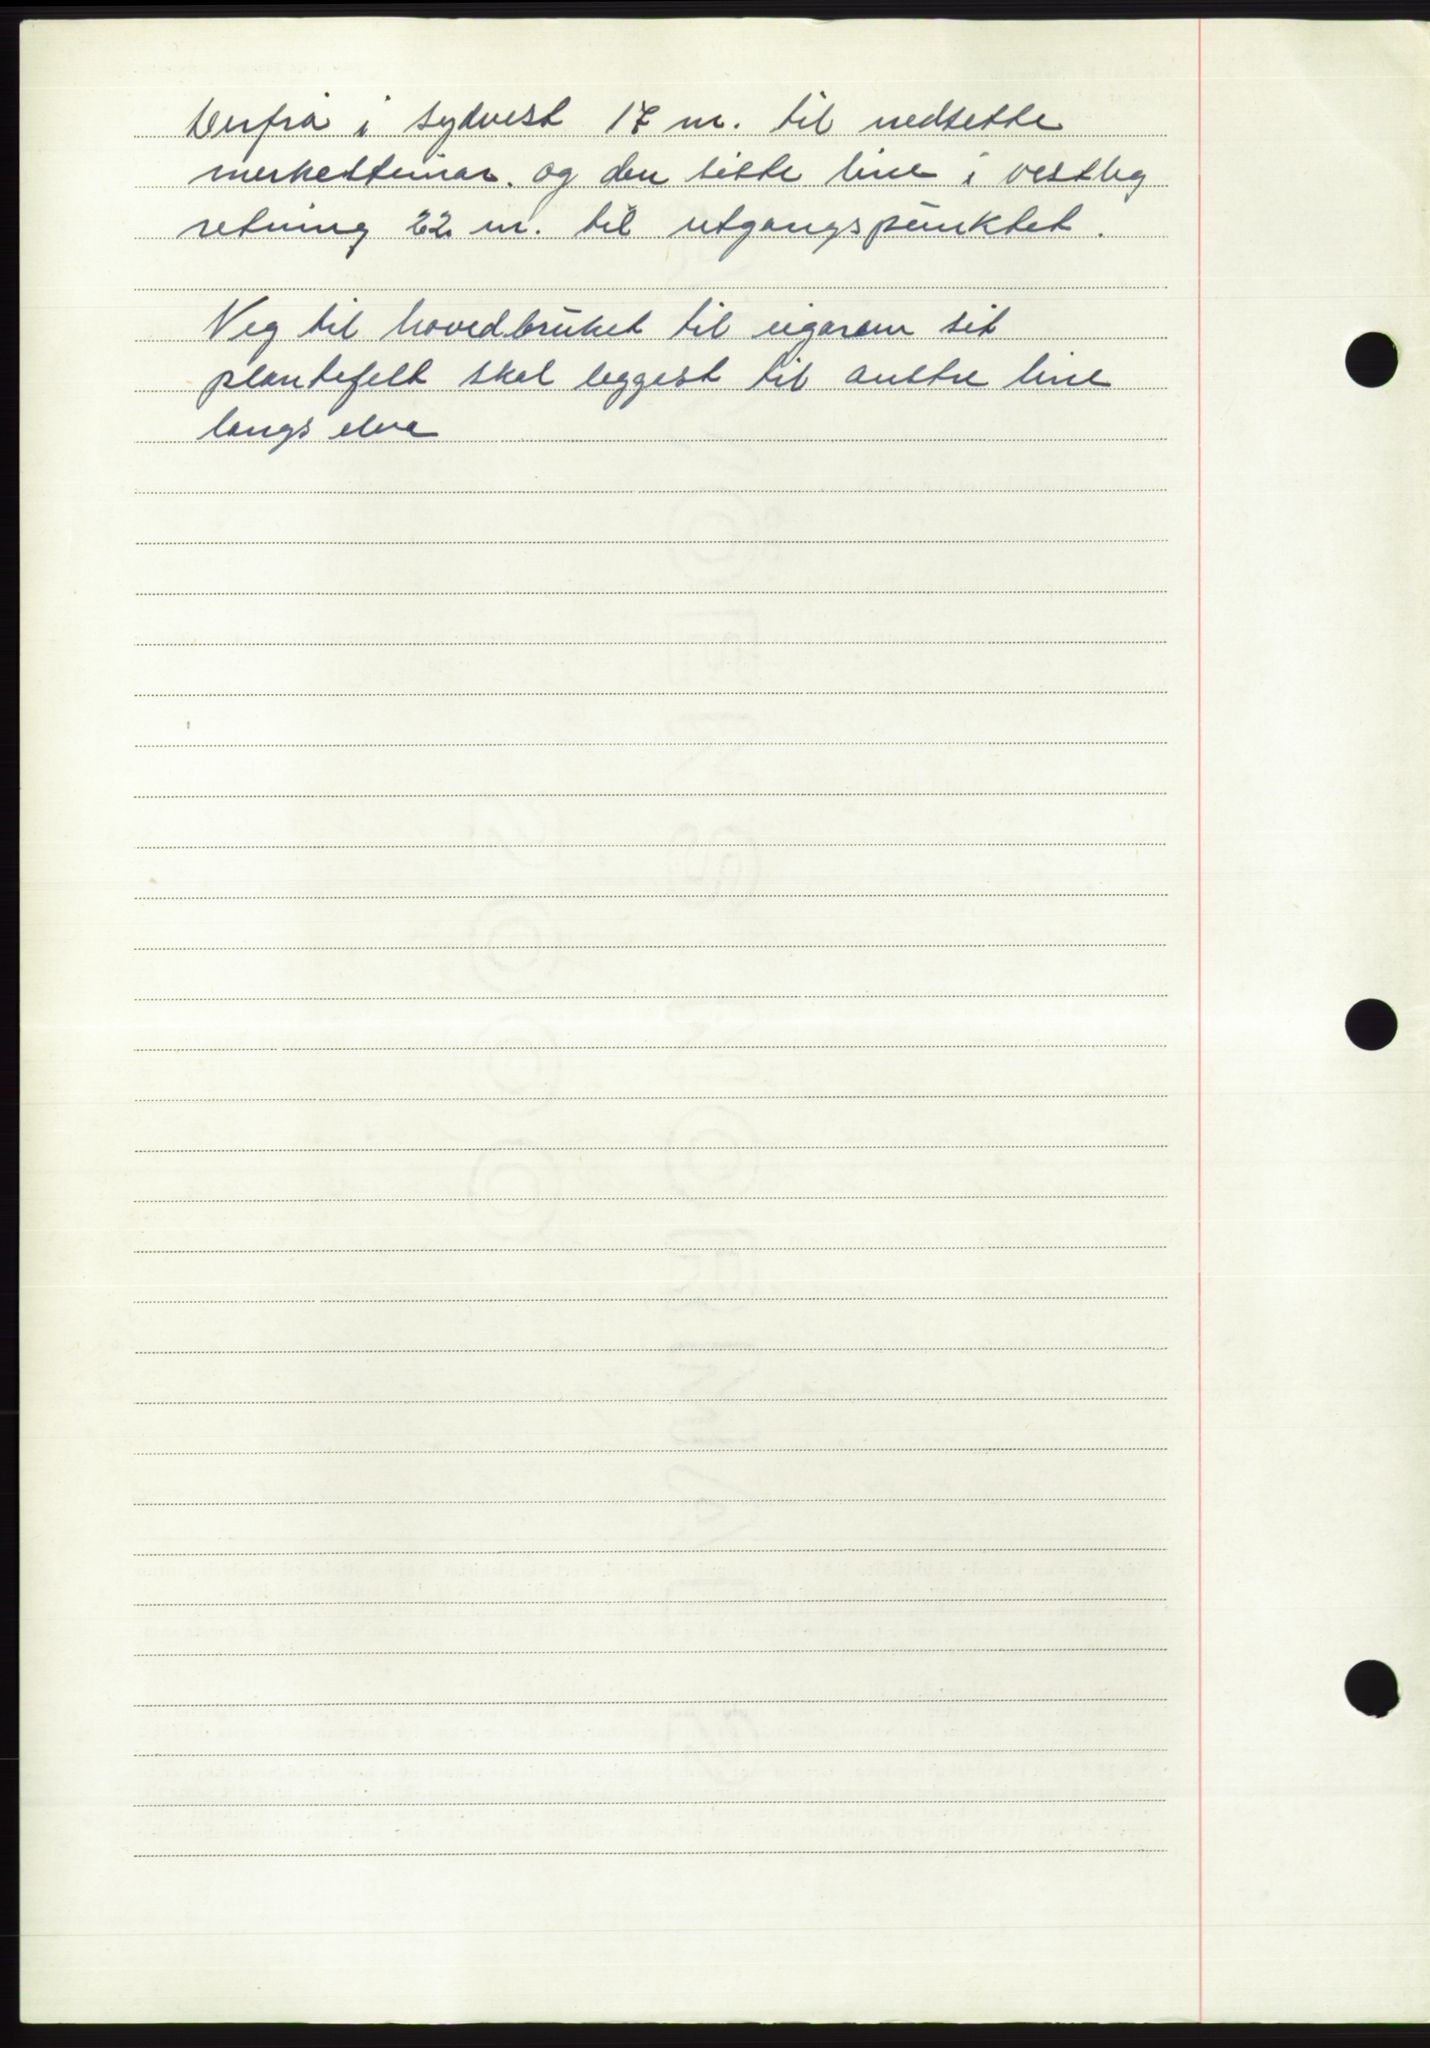 Derfrå i sydvest 17 m. til nedsette
merkesteinar. og den siste line i vestleg
retning 22 m. til utgangspunktet.
Veg til hovedbruket til eigaren sit
plantefelt skal leggest til austre line
langs elva